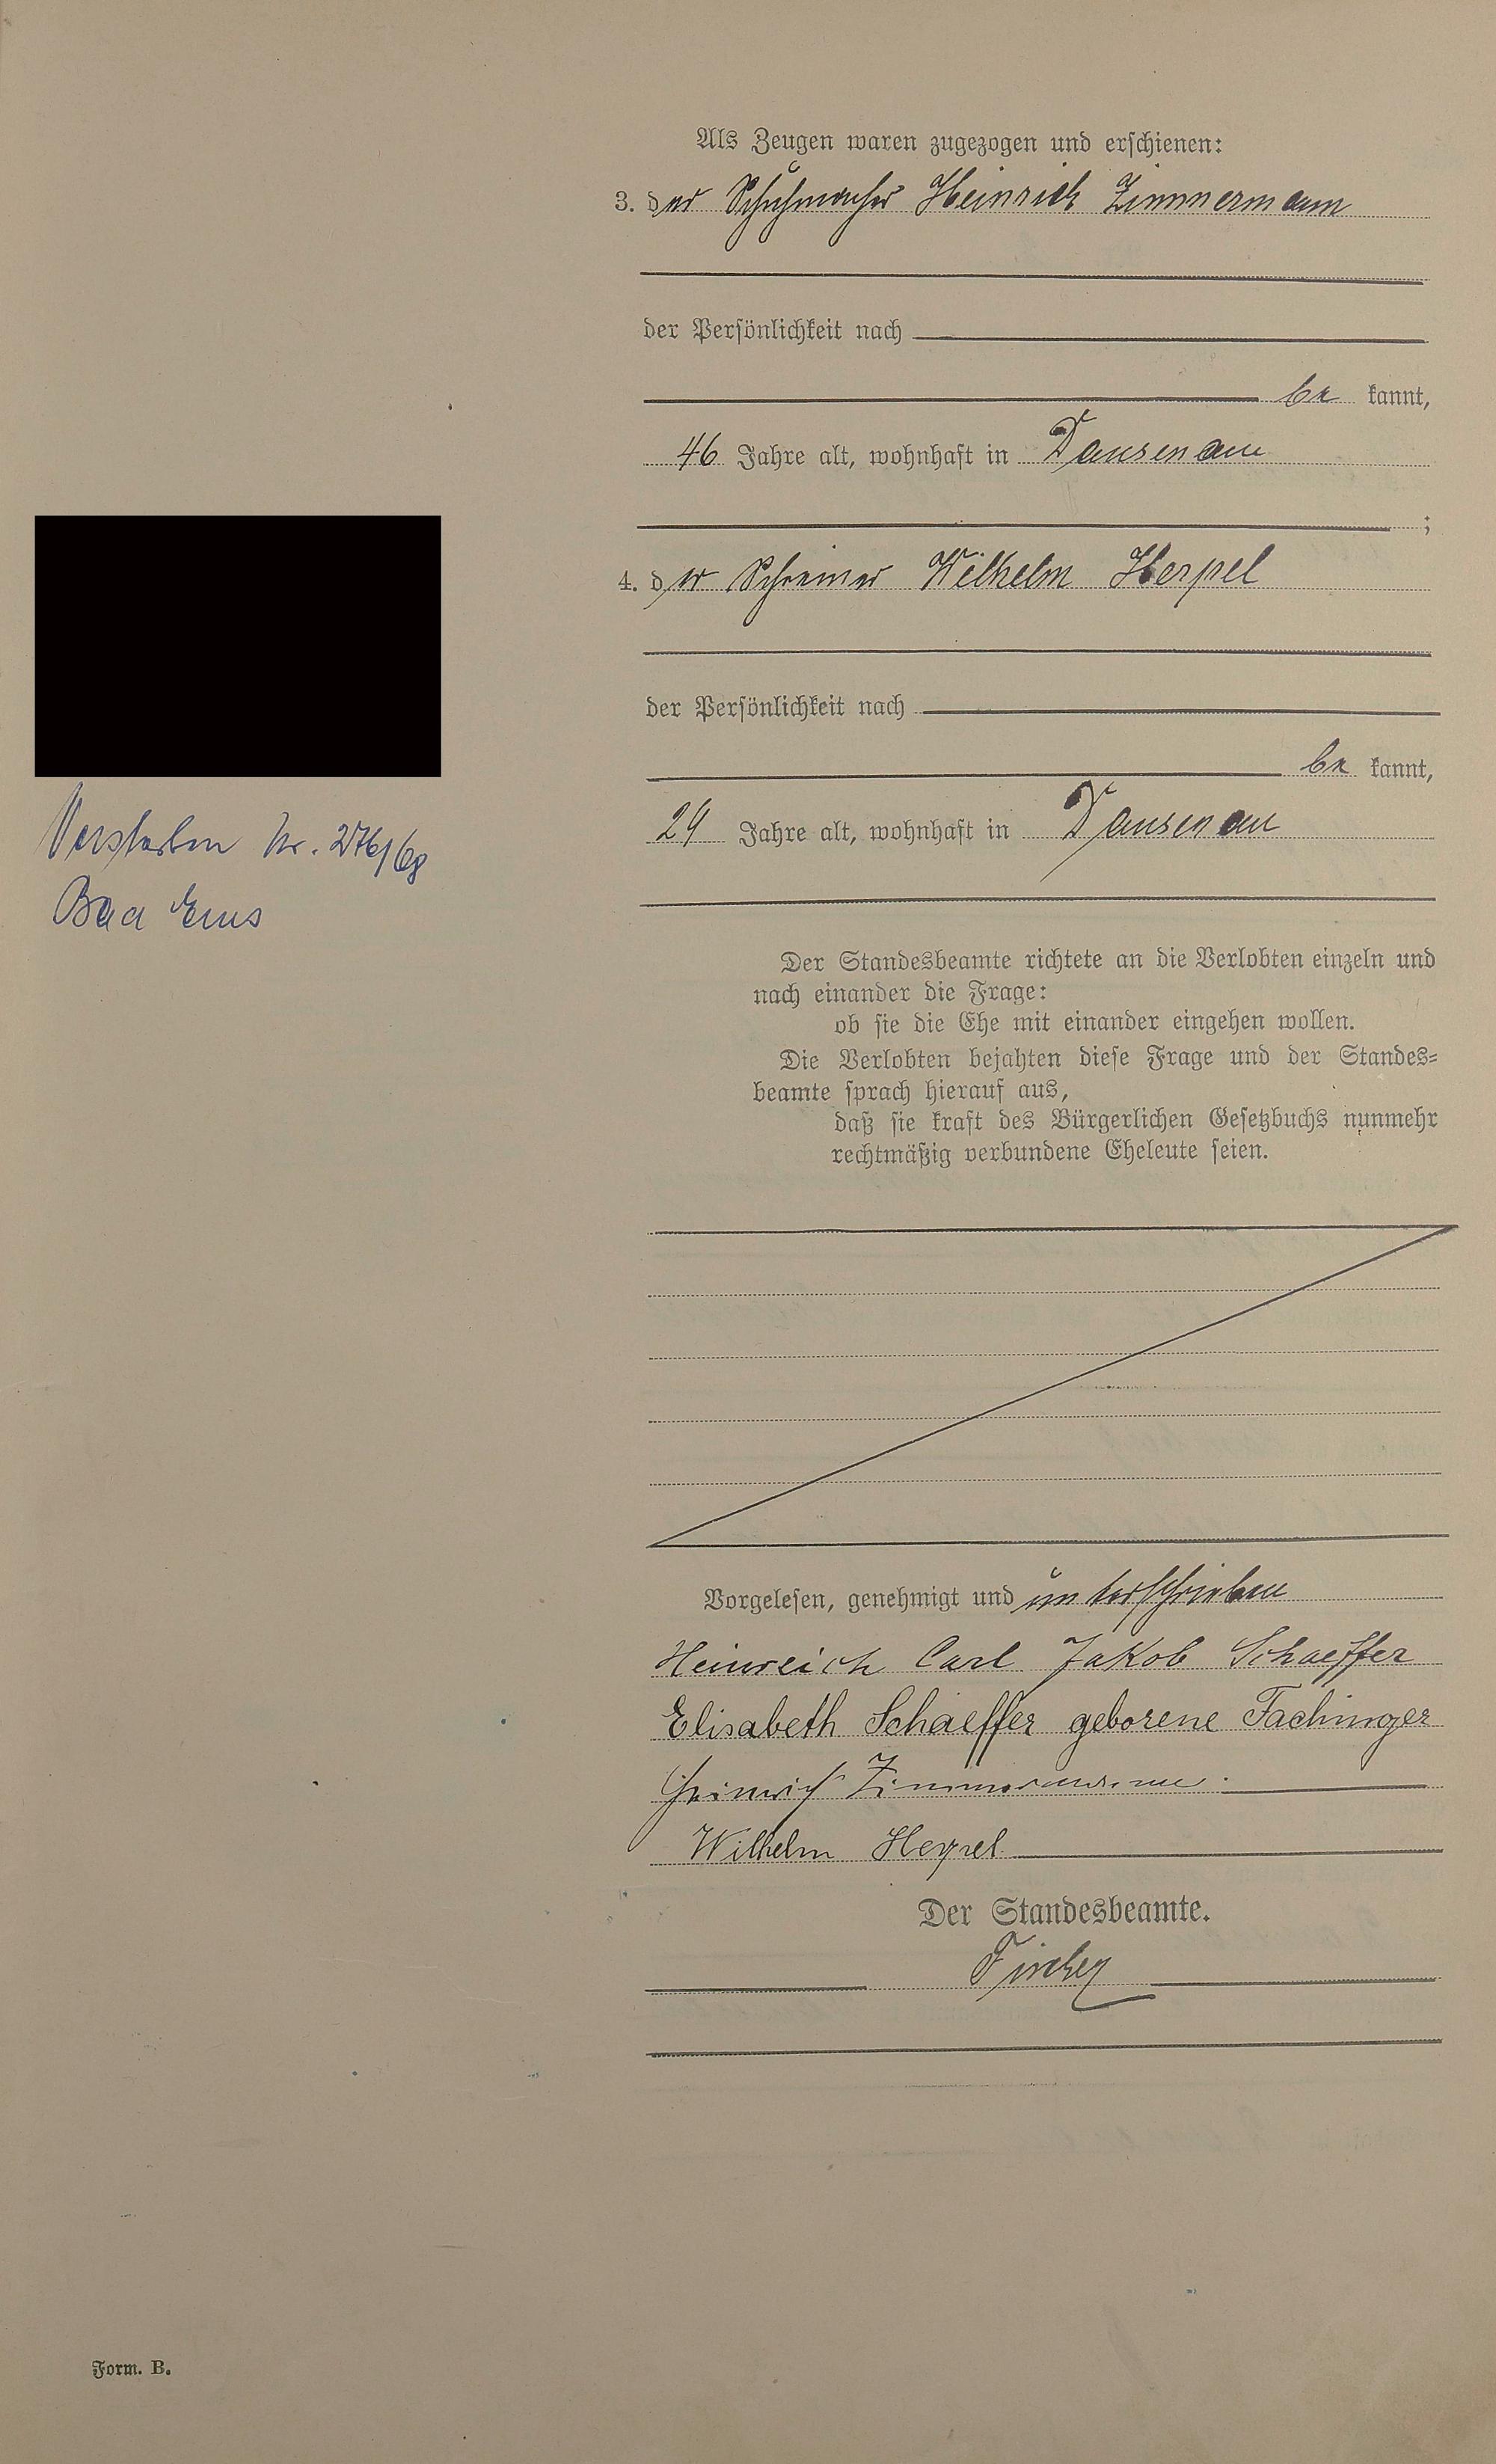 Als Zeugen waren zugezogen und erschienen:
3. der Schuhmacher Heinrich Zimmermann
der Persönlichkeit nach
be kannt,
46 Jahre alt, wohnhaft in Dausenau
;
4. der Schreiner Wilhelm Herpel
der Persönlichkeit nach
be kannt,
29 Jahre alt, wohnhaft in Dausenau
Verstorben Nr. 276/68
Bad Ems
Der Standesbeamte richtete an die Verlobten einzeln und
nach einander die Frage:
ob sie die Ehe mit einander eingehen wollen.
Die Verlobten bejahten diese Frage und der Standes=
beamte sprach hierauf aus,
daß sie kraft des Bürgerlichen Gesetzbuchs nunmehr
rechtmäßig verbundene Eheleute seien.
Vorgelesen, genehmigt und unterschrieben
Heinreich Carl Jakob Schaeffer
Elisabeth Schaeffer geborene Fachinger
Heinrich Zimmermann.
Wilhelm Herpel
Der Standesbeamte.
Form. B.